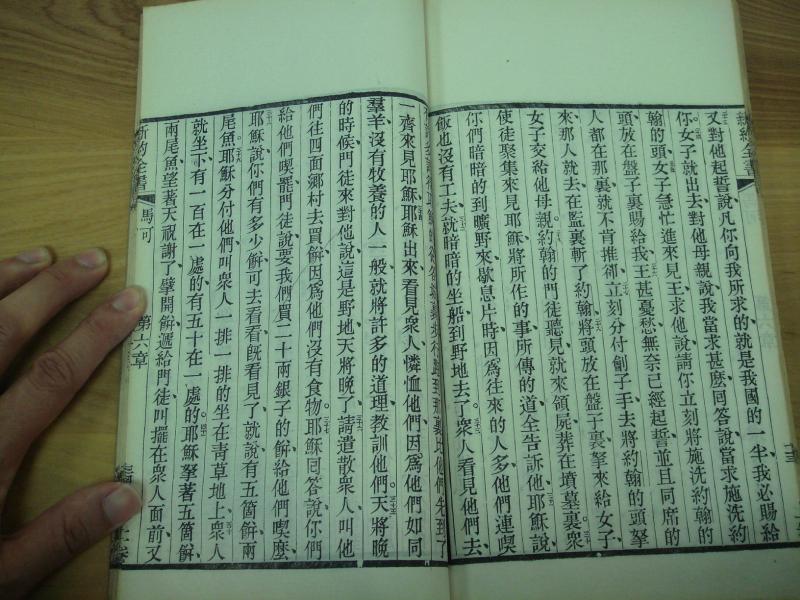 新約全書
又對他起誓說凡你向我所求的就是我國的一半我必賜給
你女子就出去對他母親說我當求甚麽回答說當求施洗約
翰的頭女子急忙進來見王求他說請你立刻將施洗約翰的
頭放在盤子裏賜給我王甚憂愁無奈已經起誓並且同席的
人都在那裏就不肯推卻立刻分付劊子手去將約翰的頭拏
來那人就去在監裏斬了約翰將頭放在盤子裏拏來給女子
女子交給他母親約翰的門徒聽見就來領屍葬在墳墓裏衆
使徒聚集來見耶穌將所作的事所傳的道全告訴他耶穌說
你們暗暗的到曠野來歇息片時因爲往來的人多他們連喫
飯也沒有工夫就暗暗的坐船到野地去了衆人看見他們去
到那裏比他們先到了
一齊來見耶穌耶穌出來看見衆人憐恤他們因爲他們如同
羣羊沒有牧養的人一般就將許多的道理教訓他們天將晚
的時候門徒來對他說這是野地天將晚了請遣散衆人叫他
們往四面鄉村去買餅因爲他們沒有食物耶穌回答說你們
給他們喫罷門徒說要我們買二十兩銀子的餅給他們喫麽
耶穌說你們有多少餅可去看看旣看見了就說有五箇餅兩
尾魚耶穌分付他們叫衆人一排一排的坐在靑草地上衆人
就坐下有一百在一處的有五十在一處的耶穌拏著五箇餅
兩尾魚望著天祝謝了擘開餅遞給門徒叫擺在衆人面前又
新約全書 馬可 第六章